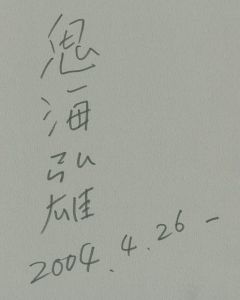 鬼海弘雄
2004.4.26 -